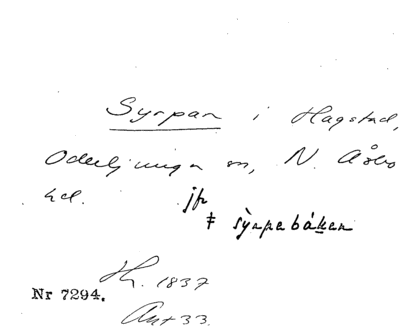 Syrpan i Hagstad,
Oderljunga sn, N. Åsbo
hd.
jfr
‡ sỳrpebáken
H. 1837
Nr 7294.
Ant 33.